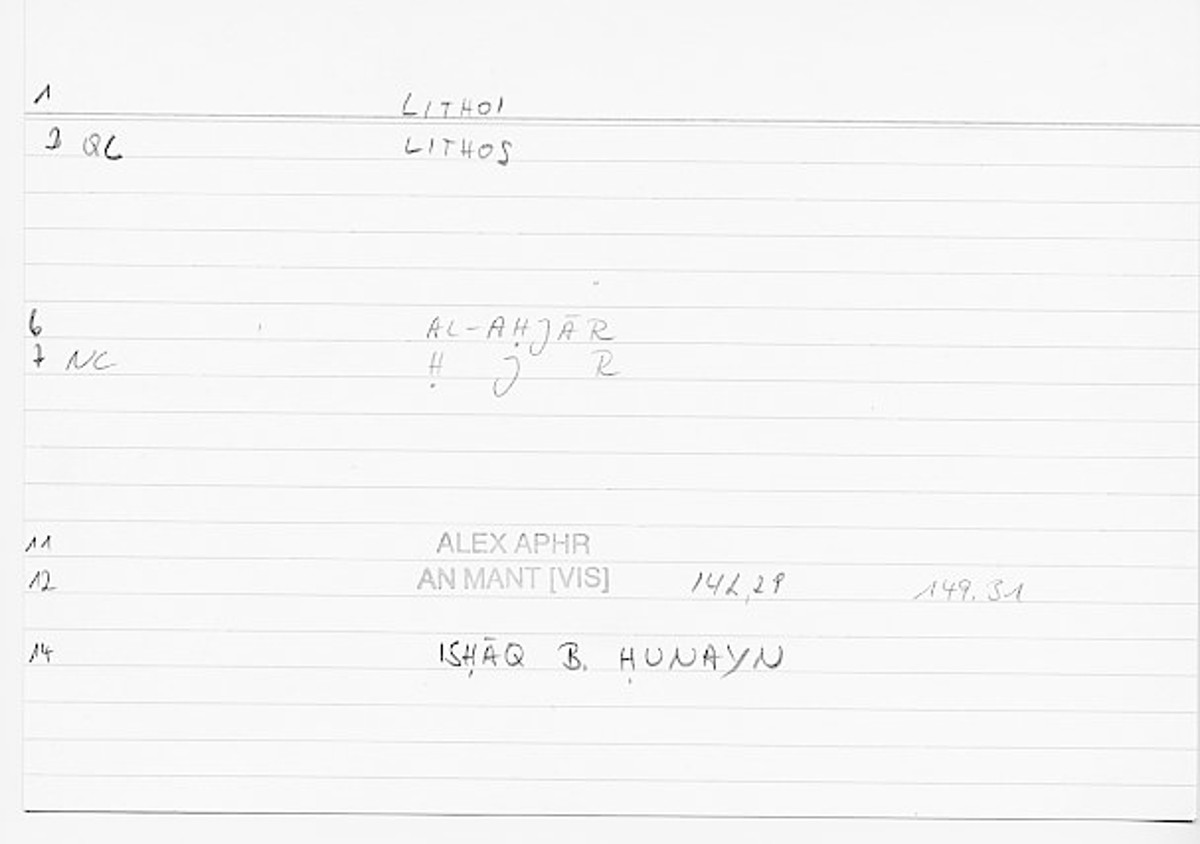 1 LITHOI
2 QL LITHOS
6 AL-AḤJĀR
7 NC Ḥ J R
11 ALEX APHR
12 AN MANT [VIS] 142,29 149.31
14 ISḤĀQ B. ḤUNAYN